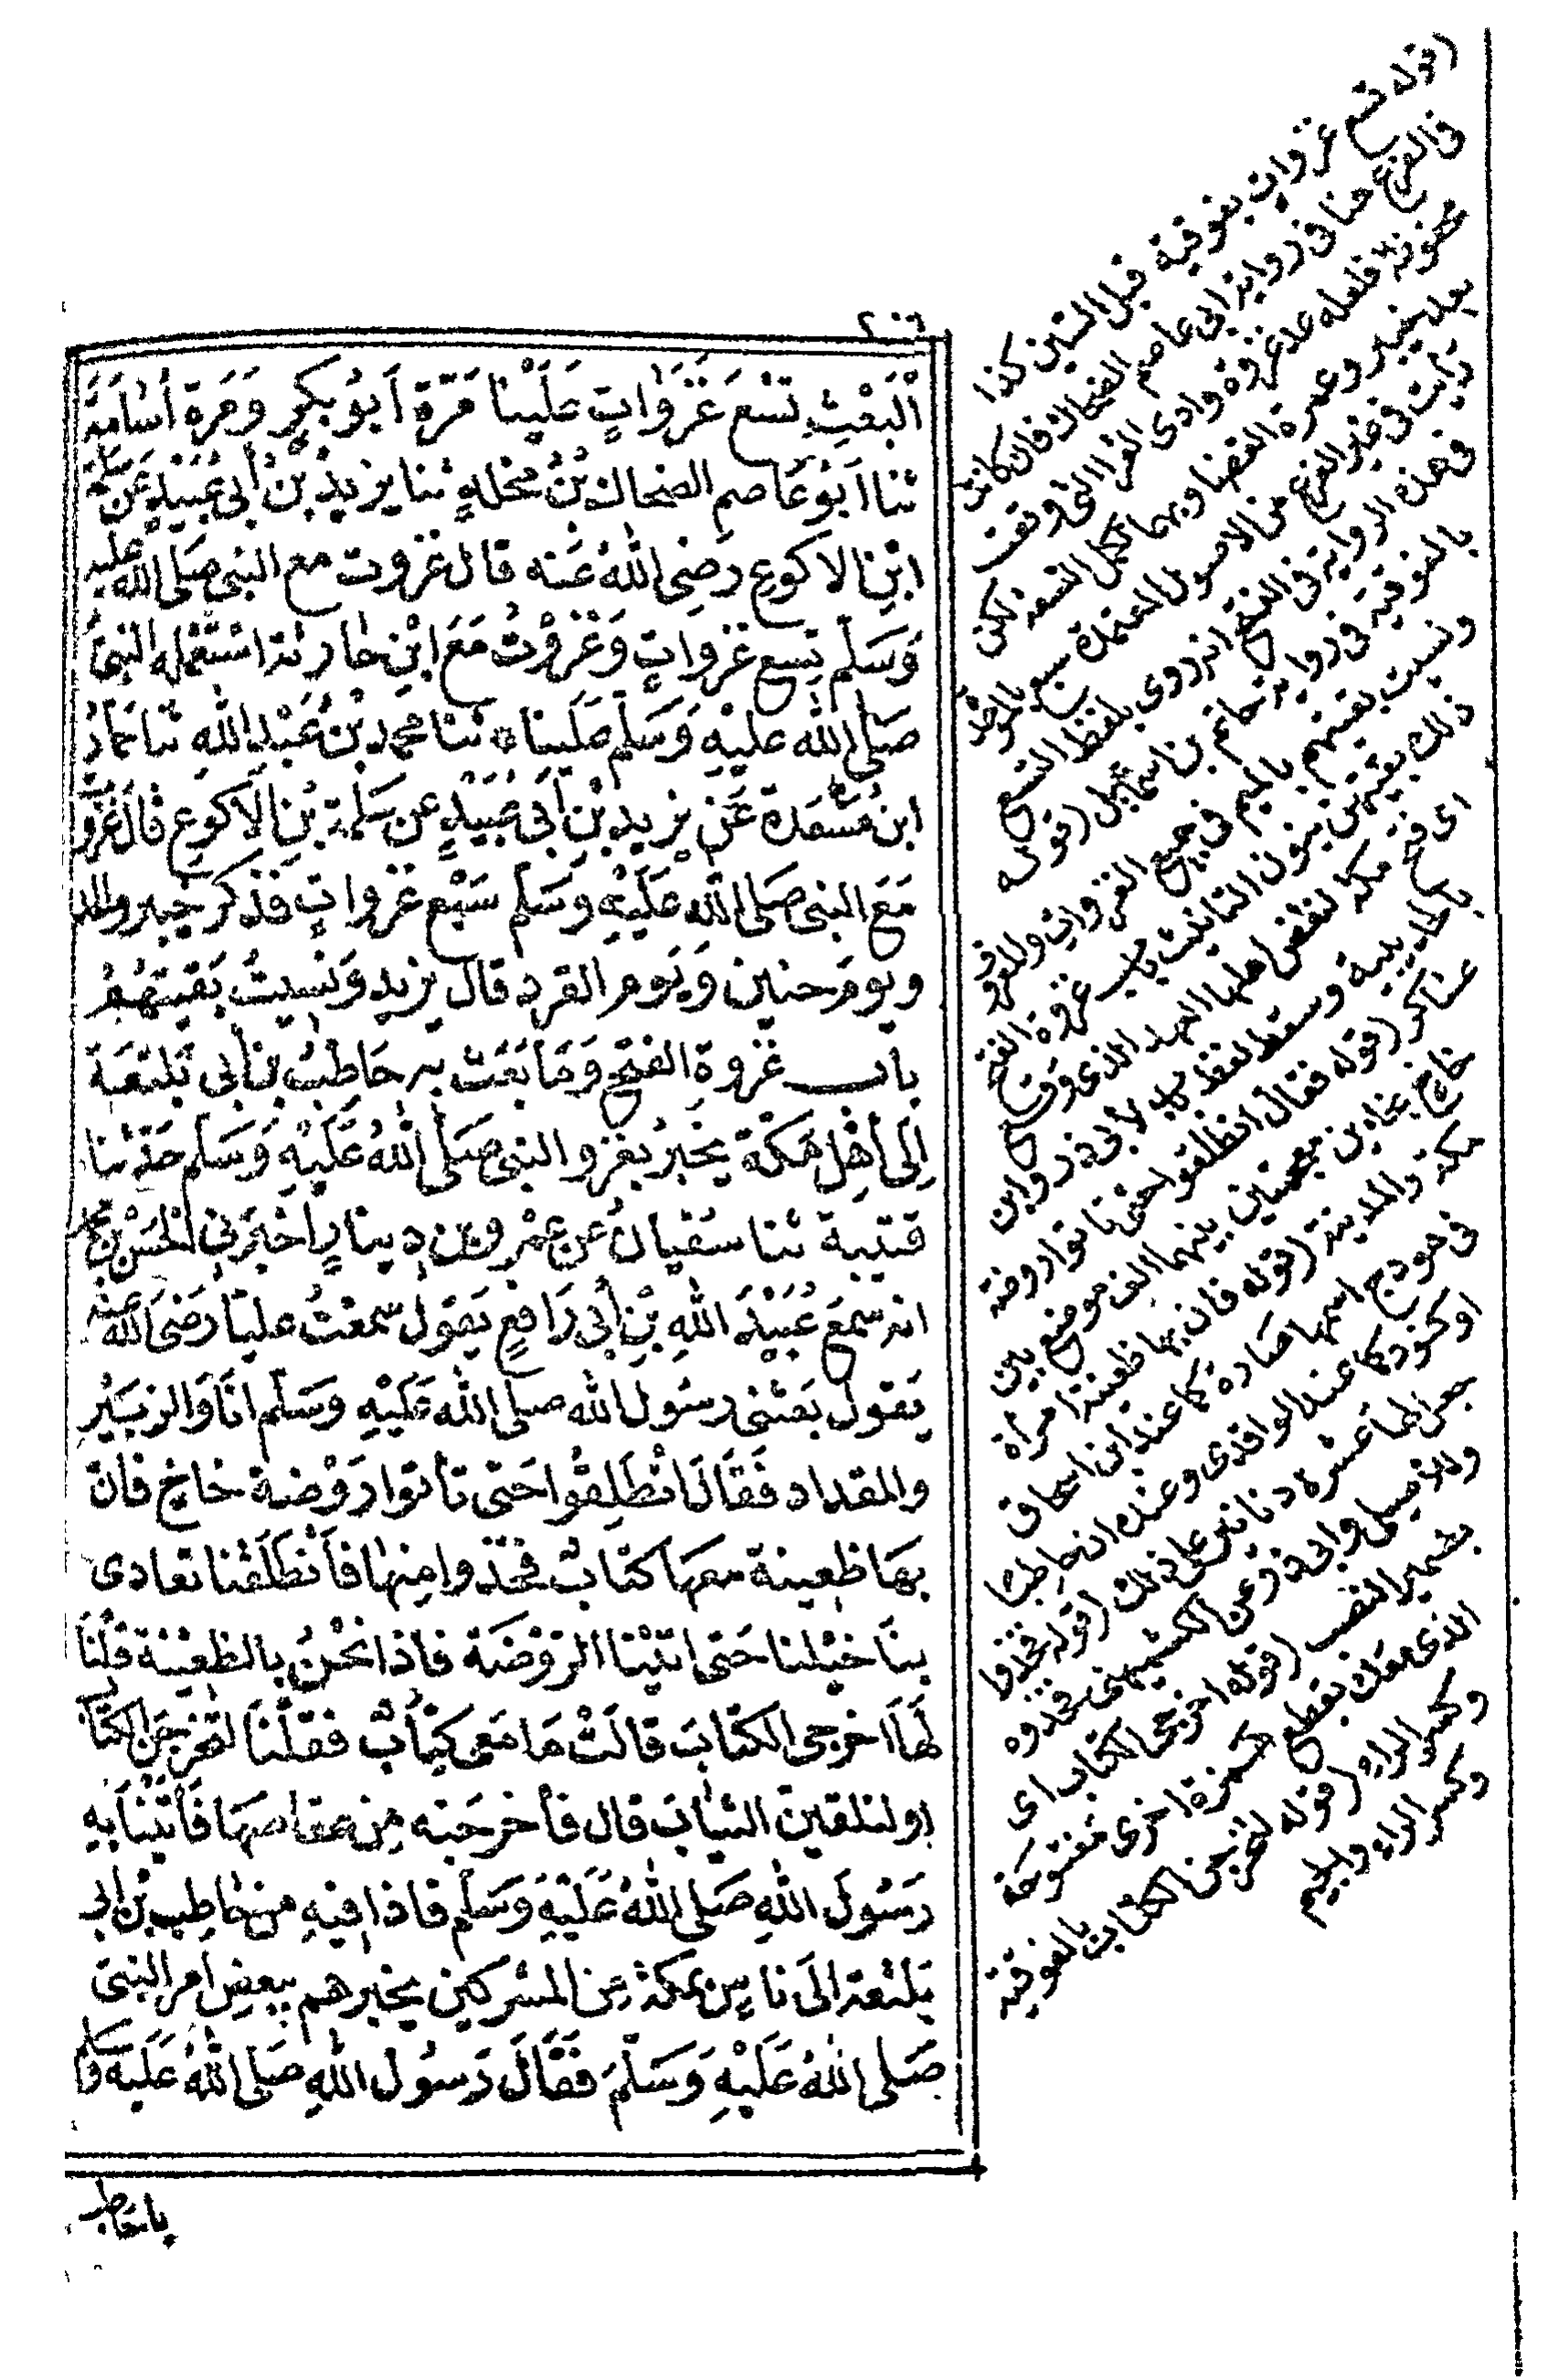 ٢٠٦
الْبَعْثِ تِسْعَ غَزَوَاتٍ عَلَيْنَا مَرَّةً اَبُو بَكْرٍ وَمَرَةً أُسَامَةُ
ثنا اَبُو عَاصِمٍ الضحاك بْنُ مخلدٍ ثنا يزيد بْنُ أبي عُبَيْدٍ عَنْ سلمة
ابْنِ الاكوع رَضِى اللهُ عَنه قال غزوت مع النبى صَلى الله عليه
وَسَلم تِسع غزواتٍ وَغَزَوْتُ مَعَ ابْنِ حَارِثة اسْتَعْمله النبىُّ
صَلى الله عليْهِ وَسَلّم عَلَينا ثنا محمد بْنُ عَبْدِ اللهِ ثنا حَمادُ
ابن مَسْعَدَة عَنْ يزيد بْنِ اَبى عُبَيْدٍ عن سَلَمة بْنِ الَاكوعِ قالَ غَزَوتُ
مَعَ النبى صَلى اللّه عَلَيْهِ وَسَلّم سَبْع غزواتٍ فذكر خيبر والحد
ويومَ حنين وَيَوم القرد قال يزيد وَنسِيتُ بَقيتهُمُ
باب غزوةِ الفتحِ وَمَا بَعَث به حَاطِبُ بنُ أبى بَلتعَة
إلى أهْلِ مَكّة يخبرُ بغزو النبى صَلى اللهُ عَلَيْهِ وَسَلم حَدثنا
قتيبة ثنا سُفيانُ عن عمْرو بن دِينارٍ اَخبَرَنى الحَسَن بن محمد
انه سمعَ عُبَيْدَ اللهِ بْنِ أبى رَافعٍ يَقول سمعْتُ عليًّا رَضىَ اللهُ عنه
يَقول بَعَثنى رسُول الله صلى الله عَلَيْهِ وَسَلّم انَا وَالزبَيْر
والمقداد فَقَالَ انْطَلِقُوا حَتى تأتوا رَوْضة خاخ فان
بهَا ظعِينة معهَا كتابٌ فخذوا منِها فَانْطَلَقْنا تعادى
بنَا خيْلنا حَتى اتَيْنَا الرَوْضَة فاذا نحْنُ بالظعِيْنة قلْنَا
لهَا اخرجى الكتابَ قالَتْ مَا مَعى كِتَابٌ فقلْنَا لتخرجِنَ الكتَاب
او لنلقين الثيابَ قال فأخرجَته مِن عقاصهَا فَأتَيْنَا بهِ
رَسُولَ اللهِ صَلى اللهُ عَلَيْهِ وَسَلّم فاذا فيهِ من حَاطِب بْن ابى
بَلتعَة الَى ناسٍ بمكة مِن المشركين يخبرهم ببعضِ امر النبى
صَلى اللهُ عَلَيْهِ وَسَلَّمَ فَقَالَ رَسُول اللهِ صَلى اللهُ عَلَيهِ وَسلم
يا حَاطب
(قوله تسع غزوات بفوقية قبل السين كذا
فى الفرع هنا فى رواية ابى عاصم الضحاك فان كانت
محفوظة فلعله عد غزوة وادى القرى التى وقعت
بعد خيبر وعمرة القضا وبهما تكمل التسعة لكن
رأيت فى غير الفرع من الاصول المعتمدة سبع بالموحدة
فى هذه الرواية فى الفتح انه روى بلفظ التسع
بالفوقية فى رواية حاتم بن اسمعيل (قوله
ونسيت بقيتهم بالميم فى جميع الغزوات والمعروف
ذلك بقيتهن بنون التانيث باب غزوة الفتح
اى فتح مكة لنقض اهلها العهد الذى وقع
بالحديبية وسقط لفظ باب لابى ذر وابن
عساكر (قوله فقال انطلقوا حتى تاتوا روضة
خاخ بخاءين معجمتين بينهما الف موضع بين
مكة والمدينة (قوله فان بها ظعينة امرأة
فى هودج اسمها سارة كما عند ابن اسحاق
او كنود كما عند الواقدى وعنده ان حاطبا
جعل لها عشرة دنانير على ذلك (قوله فخذوا
وللاصيلى وابى ذر عن الكشميهنى فخذوه
بضمير النصب (قوله اخرجى الكتاب اى
الذى معك بقطع همزة اخرى مفتوحة
وكسر الراء (قوله لتخرجن الكتاب بالفوقية
وكسر الراء والجيم